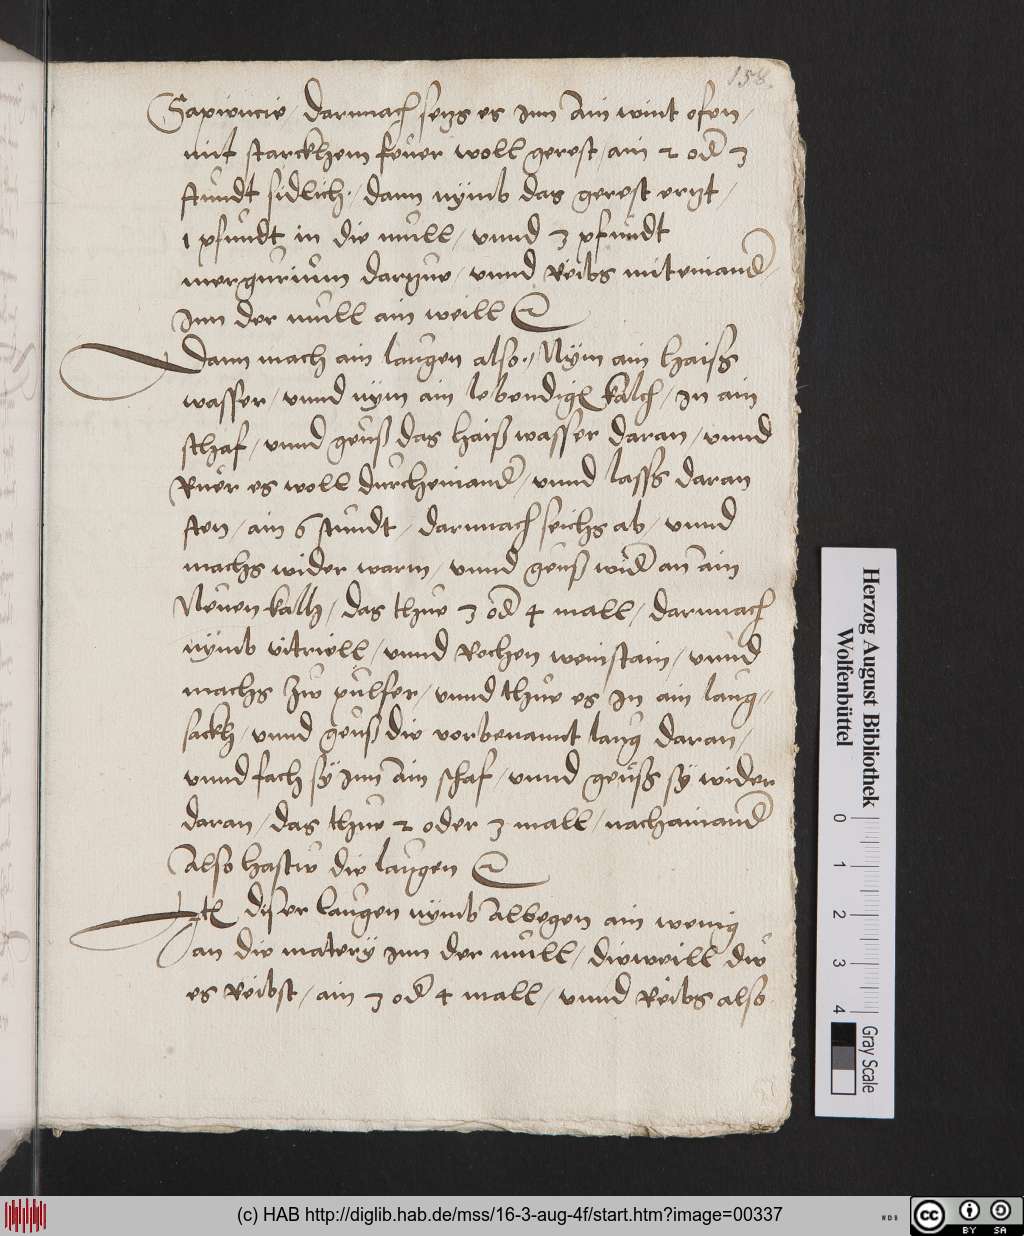 158.
Sapiencie / darnnach setzs es inn Ain wint ofen /
mit starckhem feuer woll gerest / ain 2 od 3
stundt sidlich / dann nÿmb das gerest ertzt /
1 pfundt in die mull / vnnd 3 pfundt
mergurium dartzue / vnnd Reibs miteinand /
Inn der mull ain weill
Dann mach ain laugen also / Nÿm ain haiss
wasser / vnnd nÿm ain lebendigen kalch / In ain
schaf / vnnd geuss das haiss wasser daran / vnnd
Ruer es woll durcheinand / vnnd lasss daran
sten / ain 6 stundt / darnnach seichs ab / vnnd
machs wider warm / vnnd geuss wid an ain
Neuen kalh / das thue 3 od 4 mall / darnnach
nÿmb vitriell / vnnd Rochen weinstain / vnnd
machs Zw pulfer / vnnd thue es In ain laug//
sackh / vnnd geuss die vorbenannt laug daran /
vnnd fach sÿ Inn Ain schaf / vnnd geuss sÿ wider
daran / das thue 2 oder 3 mall / nachainand
Also hastw die laugen
Itm diser laugen nÿmb Albegen ain wenig
an die materÿ Inn der mull / dieweill dw
es Reibst / ain 3 od 4 mall / vnnd Reibs also
Herzog August Bibliothek
Wolfenbüttel
0 1 2 3 4
Gray Scale
(c) HAB http://diglib.hab.de/mss/16-3-aug-4f/start.htm?image=00337
WDB
cc BY SA